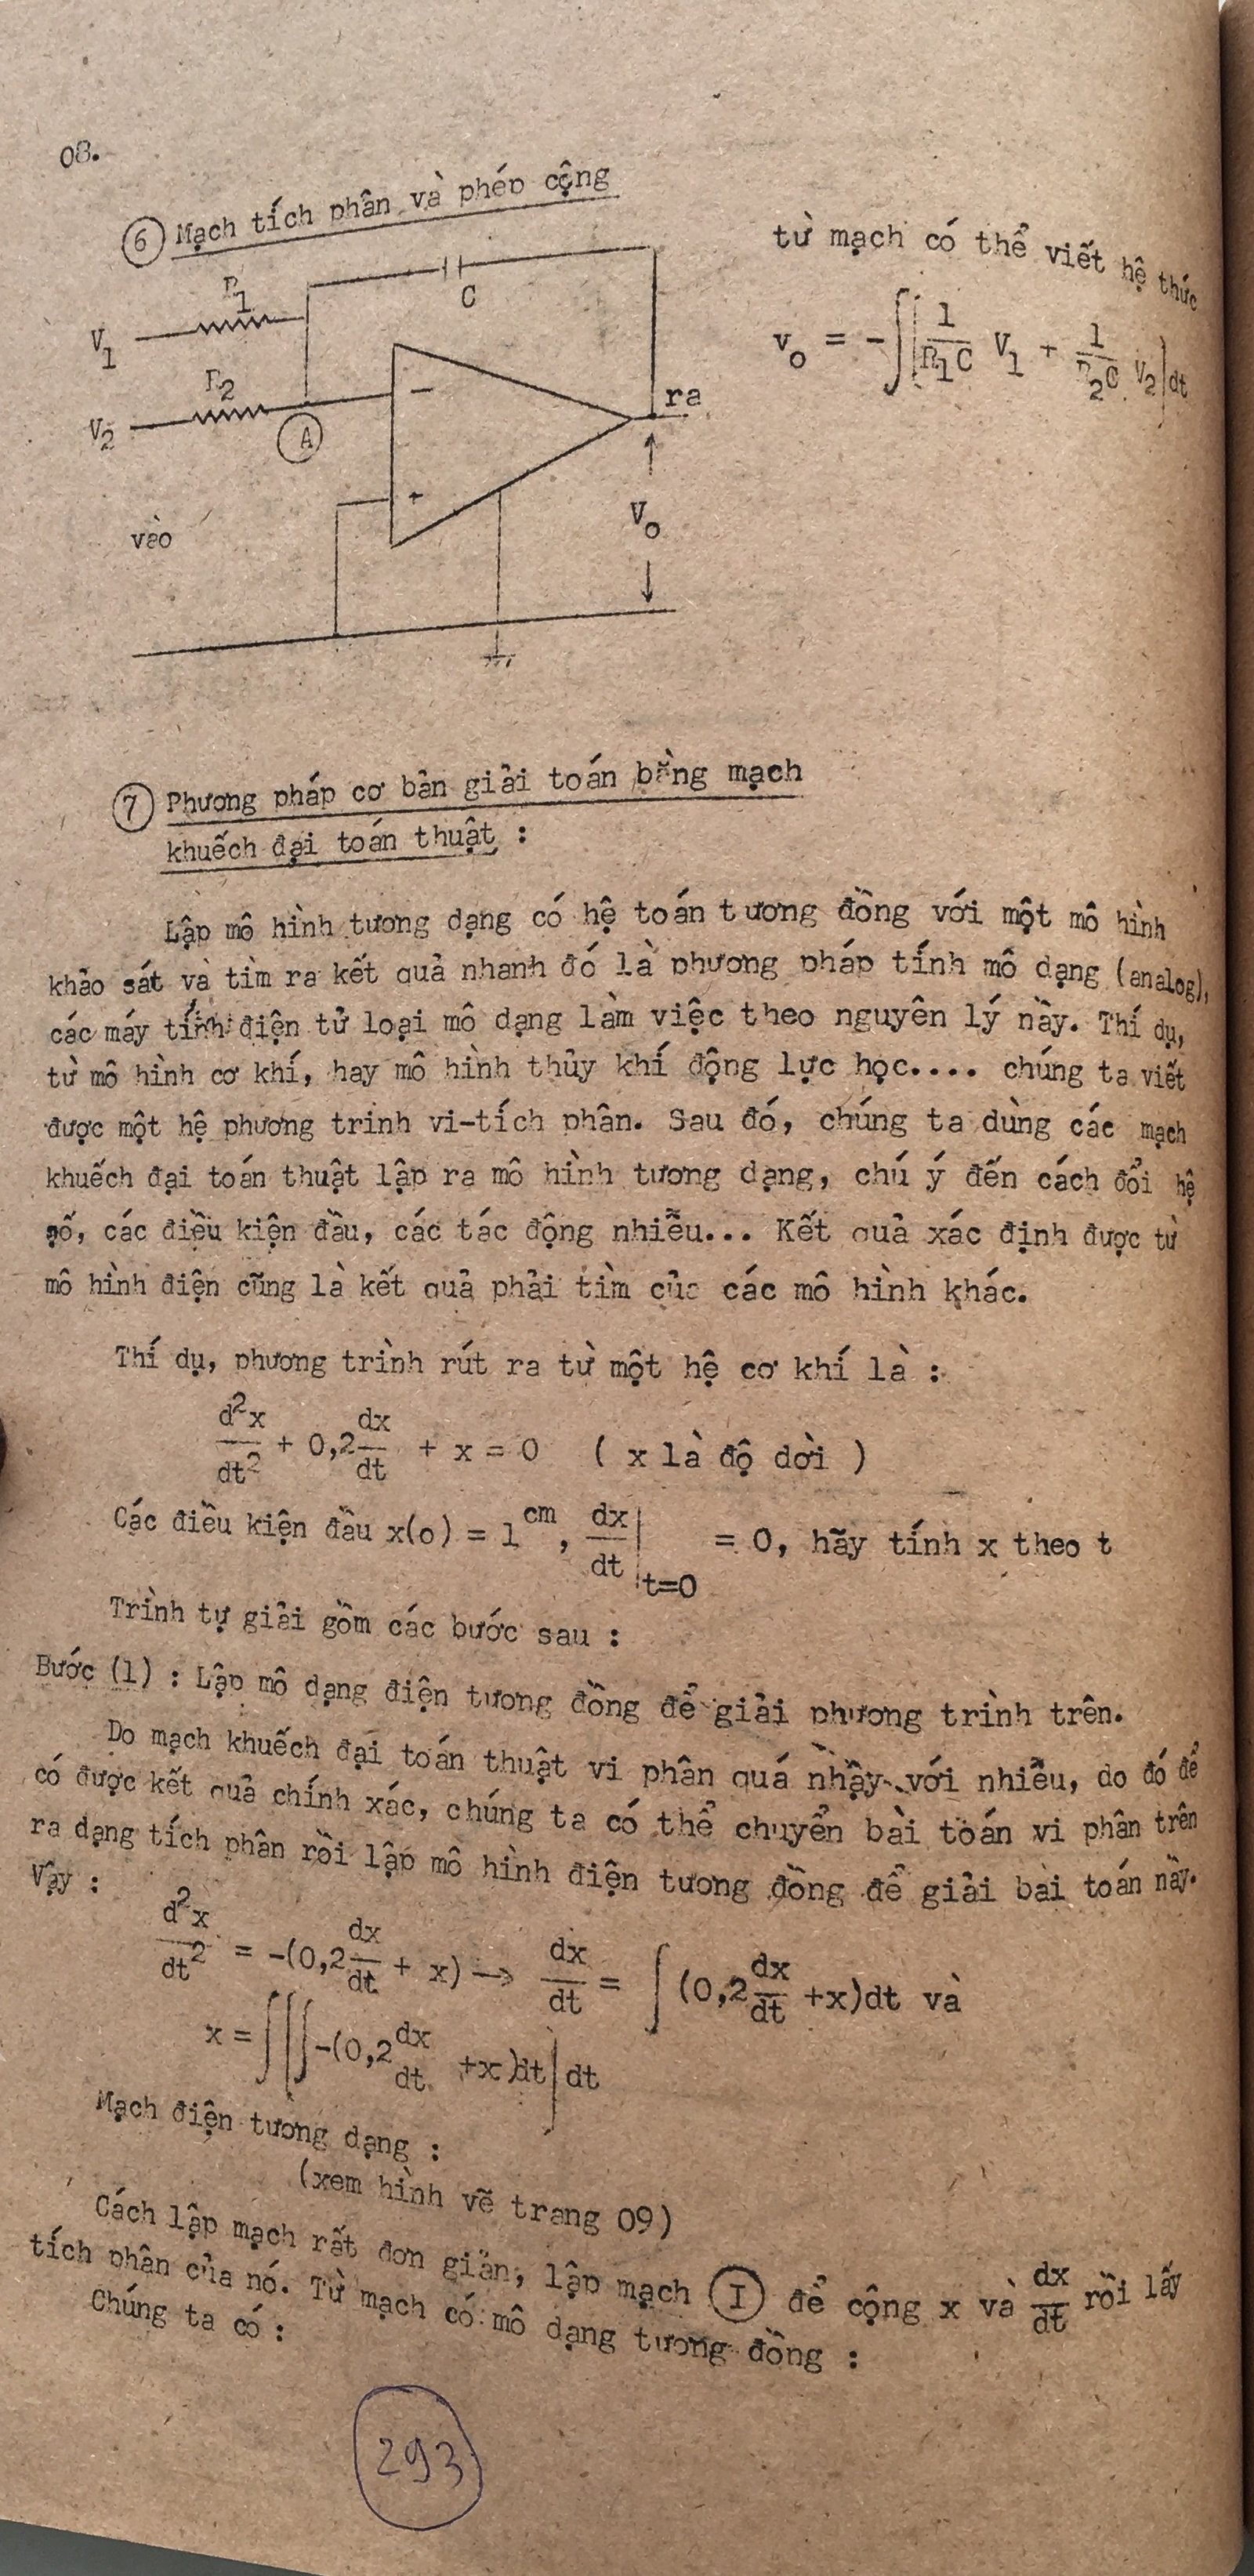 08.
⑥ Mạch tích phân và phép cộng
từ mạch có thể viết hệ thức
v₀ = -∫[1/R₁C V₁ + 1/R₂C V₂]dt
R₁
C
V₁
R₂
V₂
A
−
+
ra
vào
V₀
⑦ Phương pháp cơ bản giải toán bằng mạch
khuếch đại toán thuật :
Lập mô hình tương dạng có hệ toán tương đồng với một mô hình
khảo sát và tìm ra kết quả nhanh đó là phương pháp tính mô dạng (analog),
các máy tính điện tử loại mô dạng làm việc theo nguyên lý nầy. Thí dụ,
từ mô hình cơ khí, hay mô hình thủy khí động lực học.... chúng ta viết
được một hệ phương trinh vi-tích phân. Sau đó, chúng ta dùng các mạch
khuếch đại toán thuật lập ra mô hình tương dạng, chú ý đến cách đổi hệ
số, các điều kiện đầu, các tác động nhiễu... Kết quả xác định được từ
mô hình điện cũng là kết quả phải tìm của các mô hình khác.
Thí dụ, phương trình rút ra từ một hệ cơ khí là :
d²x/dt² + 0,2dx/dt + x = 0 ( x là độ dời )
Các điều kiện đầu x(o) = 1 cm, dx/dt|t=0 = 0, hãy tính x theo t
Trình tự giải gồm các bước sau :
Bước (1) : Lập mô dạng điện tương đồng để giải phương trình trên.
Do mạch khuếch đại toán thuật vi phân quá nhậy với nhiễu, do đó để
có được kết quả chính xác, chúng ta có thể chuyển bài toán vi phân trên
ra dạng tích phân rồi lập mô hình điện tương đồng để giải bài toán nầy.
Vậy :
d²x/dt² = -(0,2dx/dt + x) → dx/dt = ∫(0,2dx/dt +x)dt và
x = ∫[∫-(0,2dx/dt +x)dt]dt
Mạch điện tương dạng :
(xem hình vẽ trang 09)
Cách lập mạch rất đơn giản, lập mạch Ⓘ để cộng x và dx/dt rồi lấy
tích phân của nó. Từ mạch có mô dạng tương đồng :
Chúng ta có :
293